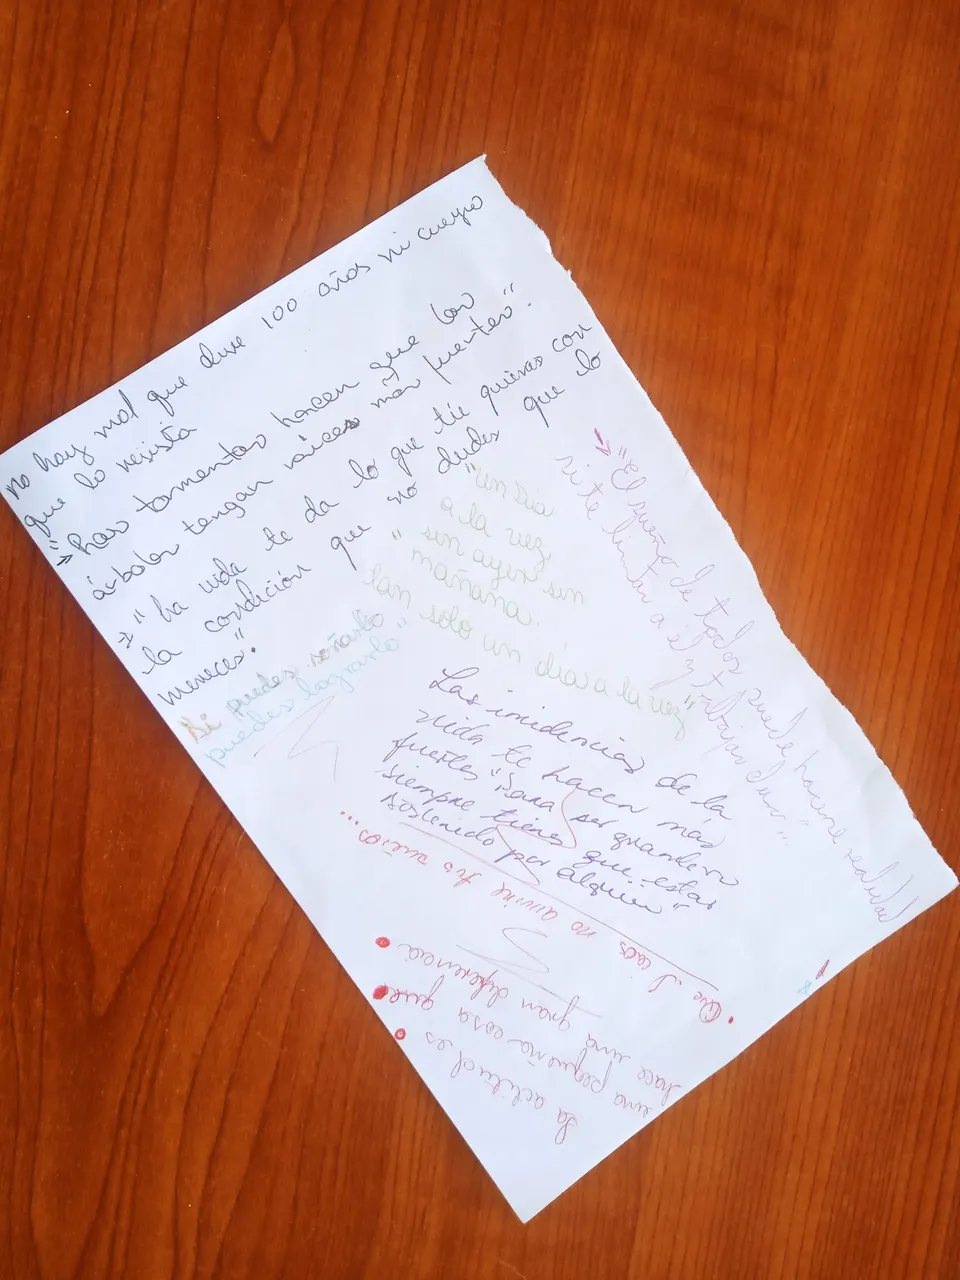 no hay mal que dure 100 años ni cuerpo
que lo resista
→ "Las tormentas hacen que los
árboles tengan raices más fuertes".
→ "La vida te da lo que tú quieras con
la condición que no dudes que lo
mereces".
Si puedes soñarlo
puedes lograrlo"
"Un día
a la vez,
sin ayer, sin
mañana.
tan solo un día a la vez"
"El sueño de todos puede hacerse realidad
si te limitan a él y trabajas duro".
Las insidencias de la
vida te hacen más
fuertes "Para ser grande
siempre tienes que estar
sostenido por alguien"
• Que el caos no arruine tus sueños...
La actitud es
una pequeña cosa que
hace una gran diferencia